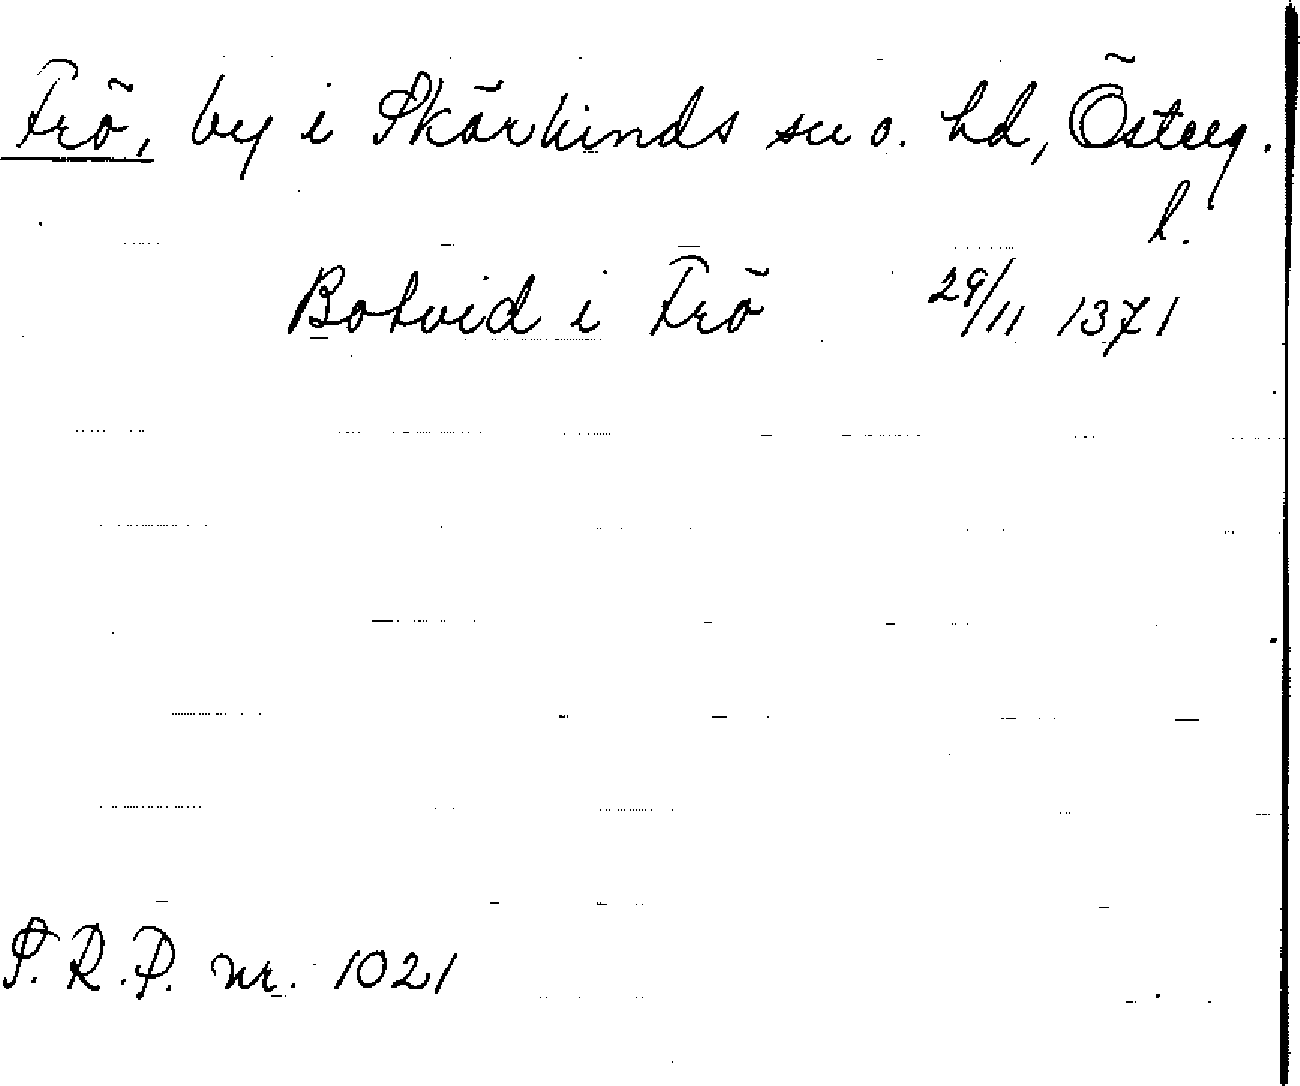 Frö, by i Skärkinds sn o. hd, Österg.
l.
Botvid i Frö 29/11 1371
S.R.P. nr. 1021